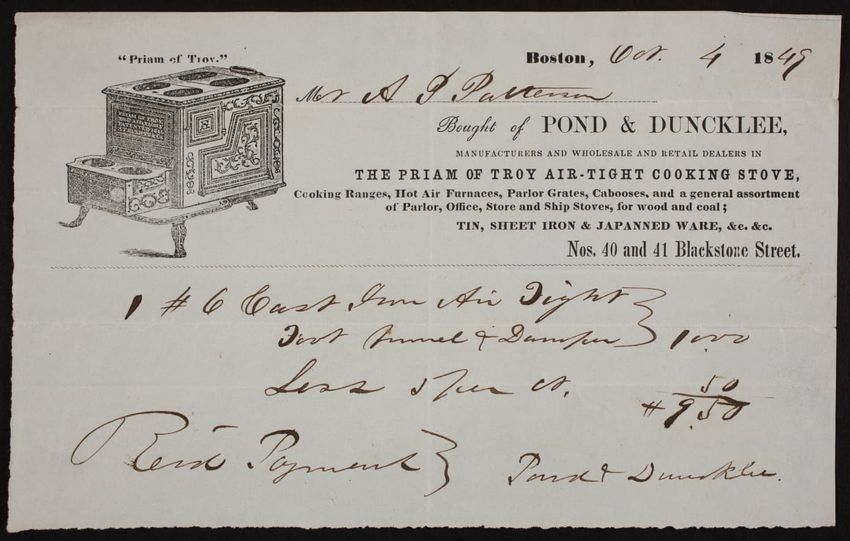 "Priam of Troy."
Boston, Oct. 4 1849
Mr A P Patterson
Bought of POND & DUNCKLEE,
MANUFACTURERS AND WHOLESALE AND RETAIL DEALERS IN
THE PRIAM OF TROY AIR-TIGHT COOKING STOVE,
Cooking Ranges, Hot Air Furnaces, Parlor Grates, Cabooses, and a general assortment
of Parlor, Office, Store and Ship Stoves, for wood and coal;
TIN, SHEET IRON & JAPANNED WARE, &c. &c.
Nos. 40 and 41 Blackstone Street.
1 # 6 Cast Iron Air Tight
funnel & Damper } 10.00
Less 5 per ct. 50
$ 9.50
Rec'd Payment } Pond & Duncklee.